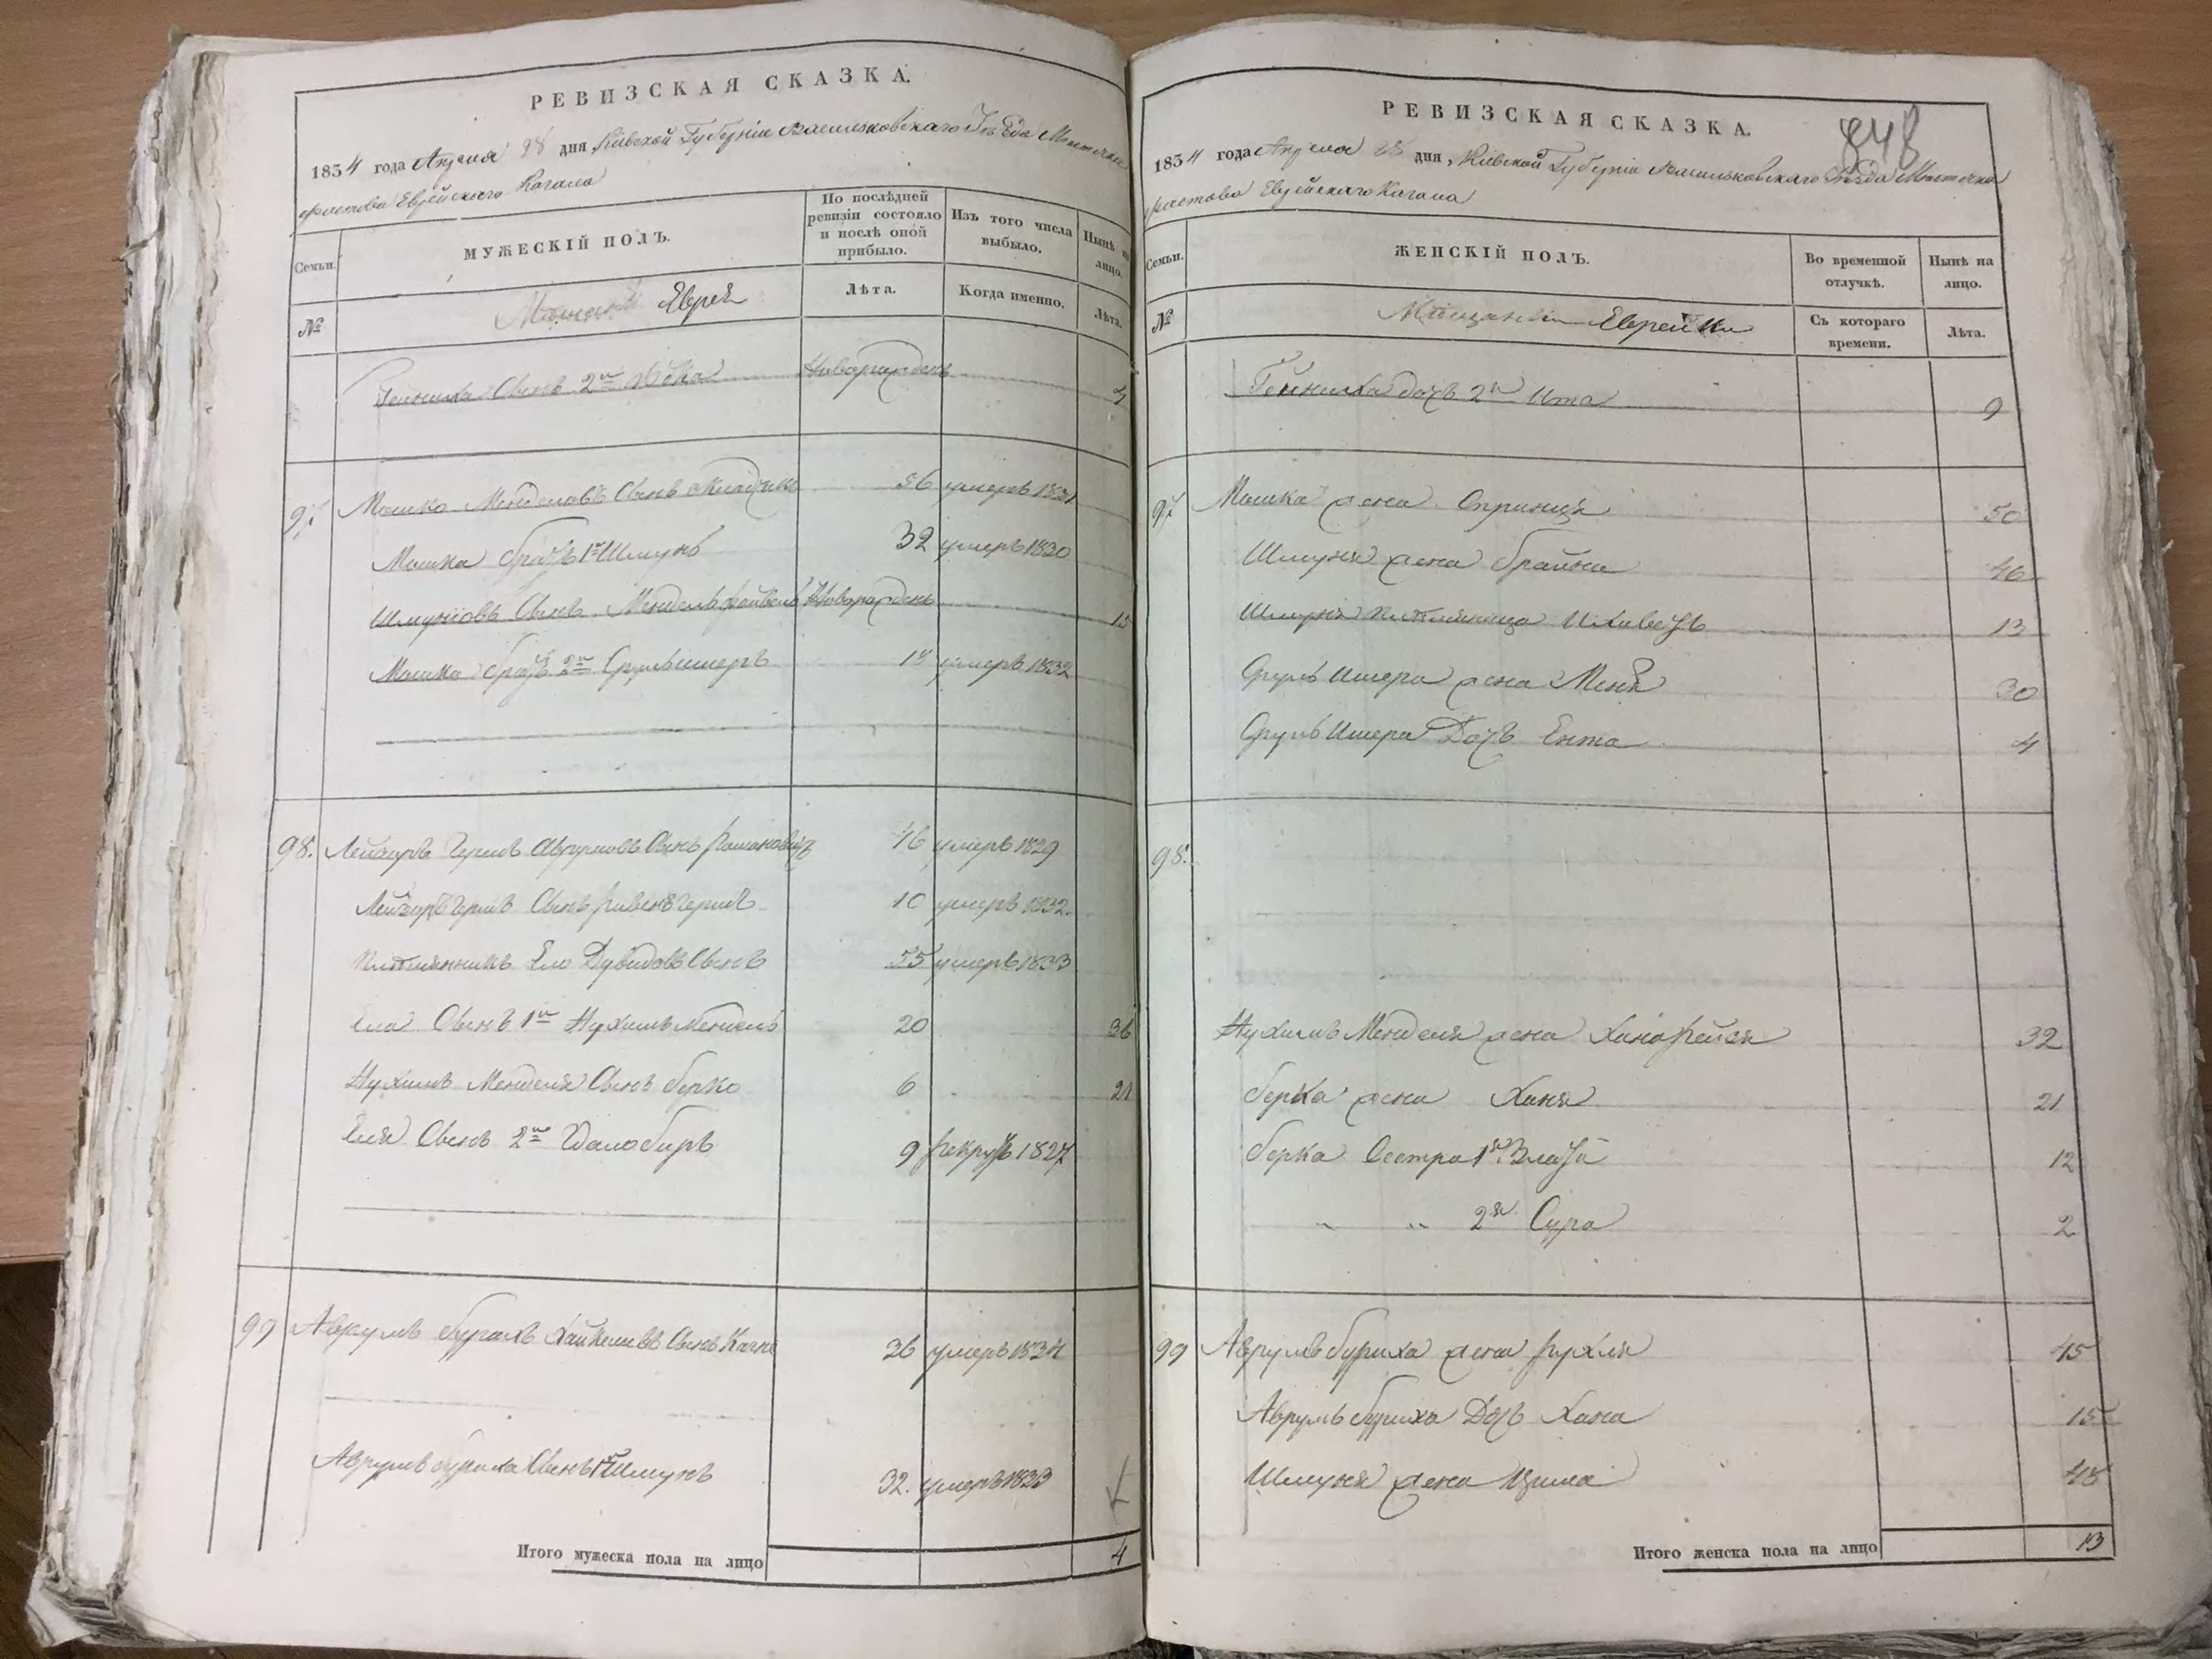 РЕВИЗСКАЯ СКАЗКА.
1834 года Апреля 28 дня Кіевской Губерніи Васильковскаго Уезда Местечка
Фастова Еврейскаго Кагала
Семьи.
МУЖЕСКІЙ ПОЛЪ.
По послѣдней ревизіи состояло и послѣ оной прибыло.
Изъ того числа выбыло.
Нынѣ на лицо.
№
Евреи
Лѣта.
Когда именно.
Лѣта.
Сынъ 2й новорожденъ
Мошко Менделовъ Сынъ 56 умеръ 1831
Мошка братъ 1й Шмунь 32 умеръ 1830
Шмуновъ Сынъ Мендель Файвель Новорожденъ 15
Мошка братъ 2й Срульишеръ 18 умеръ 1832
98. Лейзеръ Гершъ Аврумовъ Сынъ 46 умеръ 1829
Лейзеръ Гершъ Сынъ 10 умеръ 1832.
племянникъ Ело Дувидовъ Сынъ 55 умеръ 1833
Ела Сынъ 1й Нухимъ Мендель 20 36
Нухимъ Менделя Сынъ Берко 6 21
Еля Сынъ 2й 9 рекрутъ 1827
99 Аврумъ Бурихъ Сынъ Каган 26 умеръ 1834
Аврумъ Буриха Сынъ 1й Шмунъ 32. умеръ 1833
Итого мужеска пола на лицо 4
РЕВИЗСКАЯ СКАЗКА.
848
1834 года Апреля 28 дня, Кіевской Губерніи Васильковскаго Уезда Местечка
Фастова Еврейскаго Кагала
Семьи.
ЖЕНСКІЙ ПОЛЪ.
Во временной отлучкѣ.
Нынѣ на лицо.
№
Мещански Еврейки
Съ котораго времени.
Лѣта.
дочь 2я Ита 9
Мошка жена Спринця 50
Шмуня жена Брайна 46
Шмуня племяница 13
Сруль Ишера жена Меня 30
Сруль Ишера Дочь Ента 4
98.
Нухимъ Менделя жена Хана Рейся 32
Берка жена Ханя 21
Берка Сестра 1я Злата 12
" " 2я Сура 2
99 Аврумъ Буриха жена Рухля 45
Аврумъ Буриха Дочь Хана 15
Шмуня жена 45
Итого женска пола на лицо 13